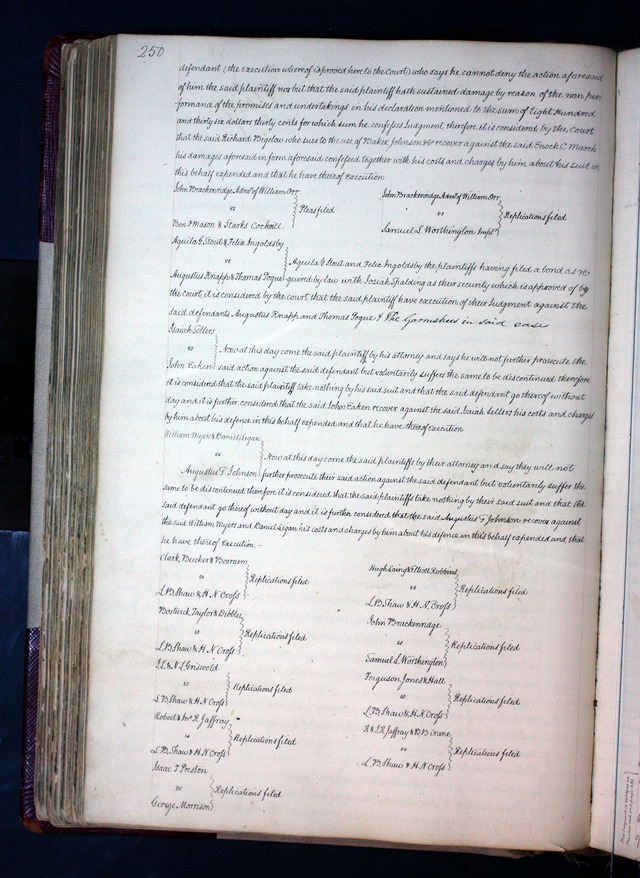 250
defendant (the execution whereof is proved here to the Court) who says he cannot deny the action aforesaid
of him the said plaintiff nor but that the said plaintiff hath sustained damage by reason of the non per
formance of the promises and undertakings in his declaration mentioned to the sum of Eight Hundred
and thirty six dollars thirty cents for which sum he confesses Judgment, therefore it is considered by the Court
that the said Richard Bigelow who sues to the use of Baker Johnson & Co recover against the said Enoch C. March
his damages aforesaid in form aforesaid confessed together with his costs and charges by him about his suit in
this behalf expended and that he have thereof execution
John Brackenridge Admr. of William Orr
vs
Pleas filed
Ben. F Mason & Starks Cockrill
John Brackenridge Admr. of William Orr
vs
Replications filed
Samuel S. Worthington
Aquila G Stout & Felix Ingoldsby
vs
Aquila G Stout and Felix Ingoldsby the plaintiffs having filed a bond as re-
Augustus Knapp & Thomas Pogue
quired by law with Josiah Spalding as their security which is approved of by
the court, it is considered by the court that the said plaintiff have execution of their Judgment against the
said defendants Augustus Knapp and Thomas Pogue & the Garnishees in said case
Isaiah Sellers
vs
Now at this day come the said plaintiff by his attorney and says he will not further prosecute the
John Eaken
said action against the said defendant but voluntarily suffers the same to be discontinued therefore
it is considered that the said plaintiff take nothing by his said suit and that the said defendant go thereof without
day and it is further considered that the said John Eaken recover against the said Isaiah Sellers his costs and charges
by him about his defence in this behalf expended and that he have thereof execution
William Myers & Daniel Ligan
vs
Now at this day come the said plaintiffs by their attorney and say they will not
Augustus F Johnson
further prosecute their said action against the said defendant but voluntarily suffer the
same to be discontinued therefore it is considered that the said plaintiffs take nothing by their said suit and that the
said defendant go thereof without day and it is further considered that the said Augustus F Johnson recover against
the said William Myers and Daniel Ligan his costs and charges by him about his defence in this behalf expended and that
he have thereof Execution
Clark, Bucher &
vs
Replications filed
L. B. Shaw & H. N. Cross
Hugh Laing & Elliott Robbins
vs
Replications filed
L. B. Shaw & H. N. Cross
Bostwick, Taylor & Dibblee
vs
Replications filed
L. B. Shaw & H. N. Cross
John Brackenridge
vs
Replications filed
Samuel S. Worthington
& N. L Griswold
vs
Replications filed
L. B. Shaw & H. N. Cross
Ferguson Jones & Hall
vs
Replications filed
L. B. Shaw & H. N. Cross
Robert & Jno. R. Jaffray
vs
Replications filed
L. B. Shaw & H. N. Cross
R & J. R Jaffray & D. B. Crane
vs
Replications filed
L. B. Shaw & H. N. Cross
Isaac T Preston
vs
Replications filed
George Morrison